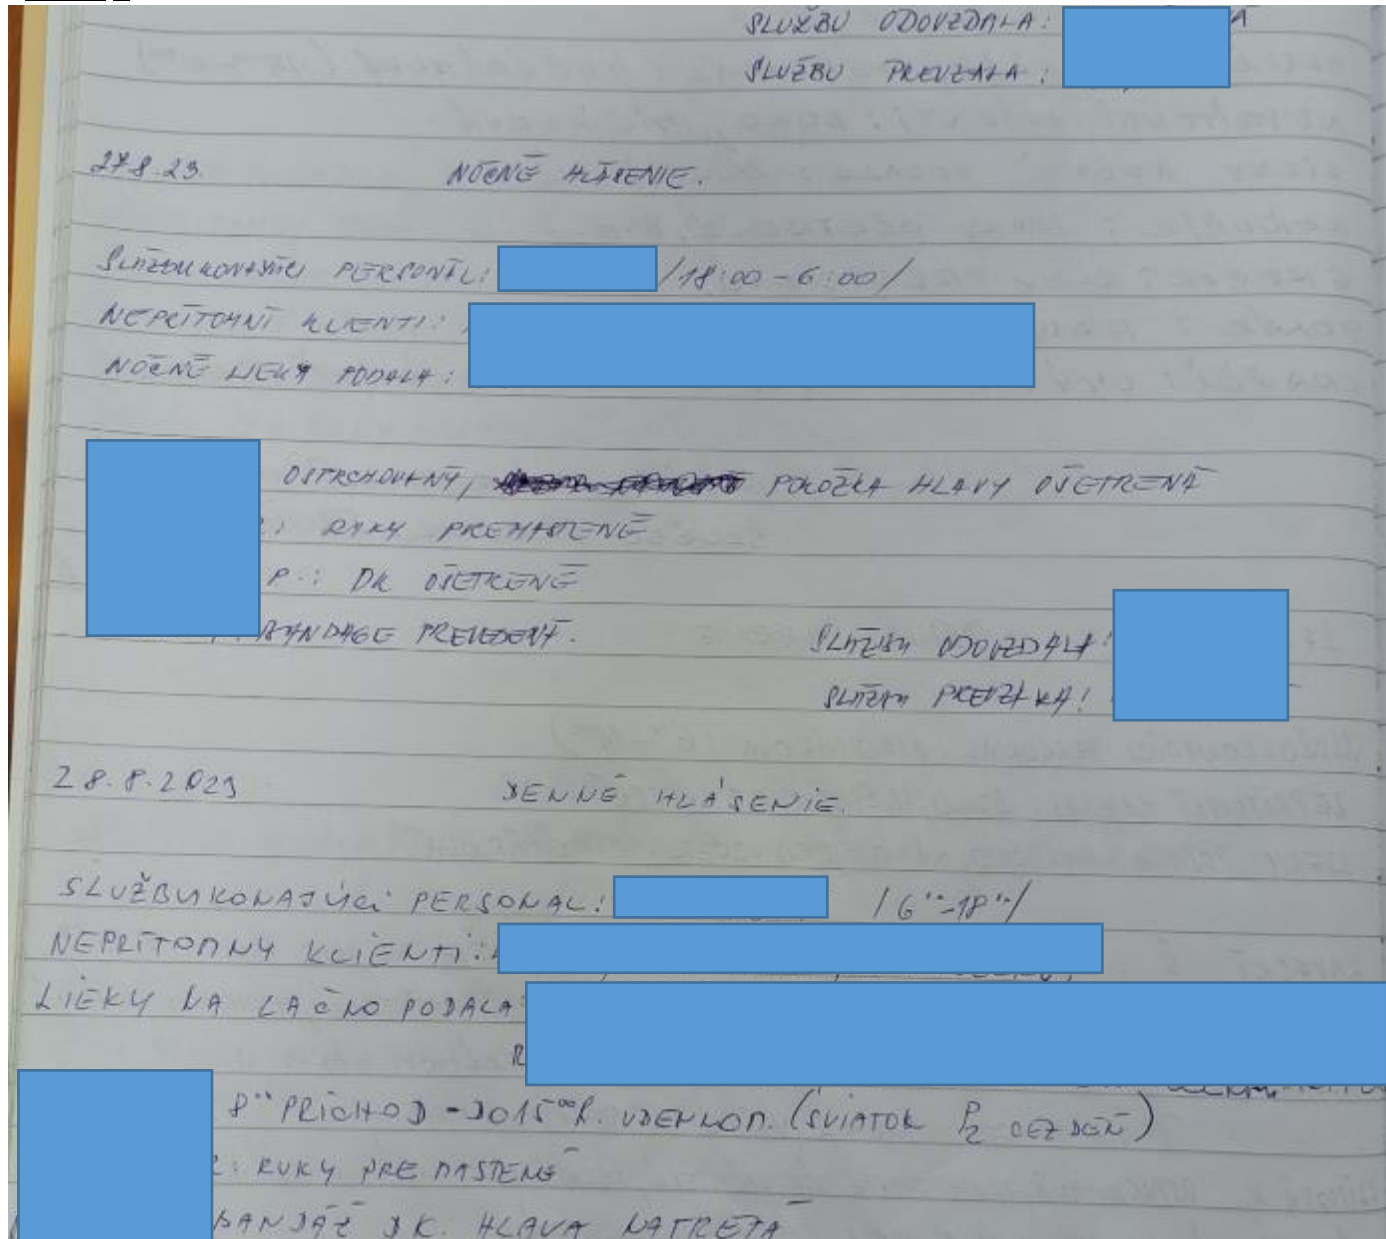 SLUŽBU ODOVZDALA:
SLUŽBU PREVZALA:
27.8.23. NOČNÉ HLÁSENIE.
SLUŽBUKONAJÚCI PERSONÁL: /18:00-6:00/
NEPRÍTOMNÍ KLIENTI:
NOČNÉ LIEKY PODALA:
OSTRCHOVANÝ, POLOŽKA HLAVY OŠETRENÁ
: RUKY PREMASTENÉ
P.: DK OŠETRENÉ
BANDAGE PREVEDENÁ.
SLUŽBU ODOVZDALA:
SLUŽBU PREVZALA:
28.8.2023 DENNÉ HLÁSENIE.
SLUŽBUKONAJÚCI PERSONAL: /6°°-18°°/
NEPRÍTOMNY KLIENTI:
LIEKY NA LAČNO PODALA:
R
8°° PRÍCHOD - DO 15°° h. (SVIATOK CEZ DEŇ)
: RUKY PREMASTENÉ
BANDÁŽ DK. HLAVA NATRETÁ